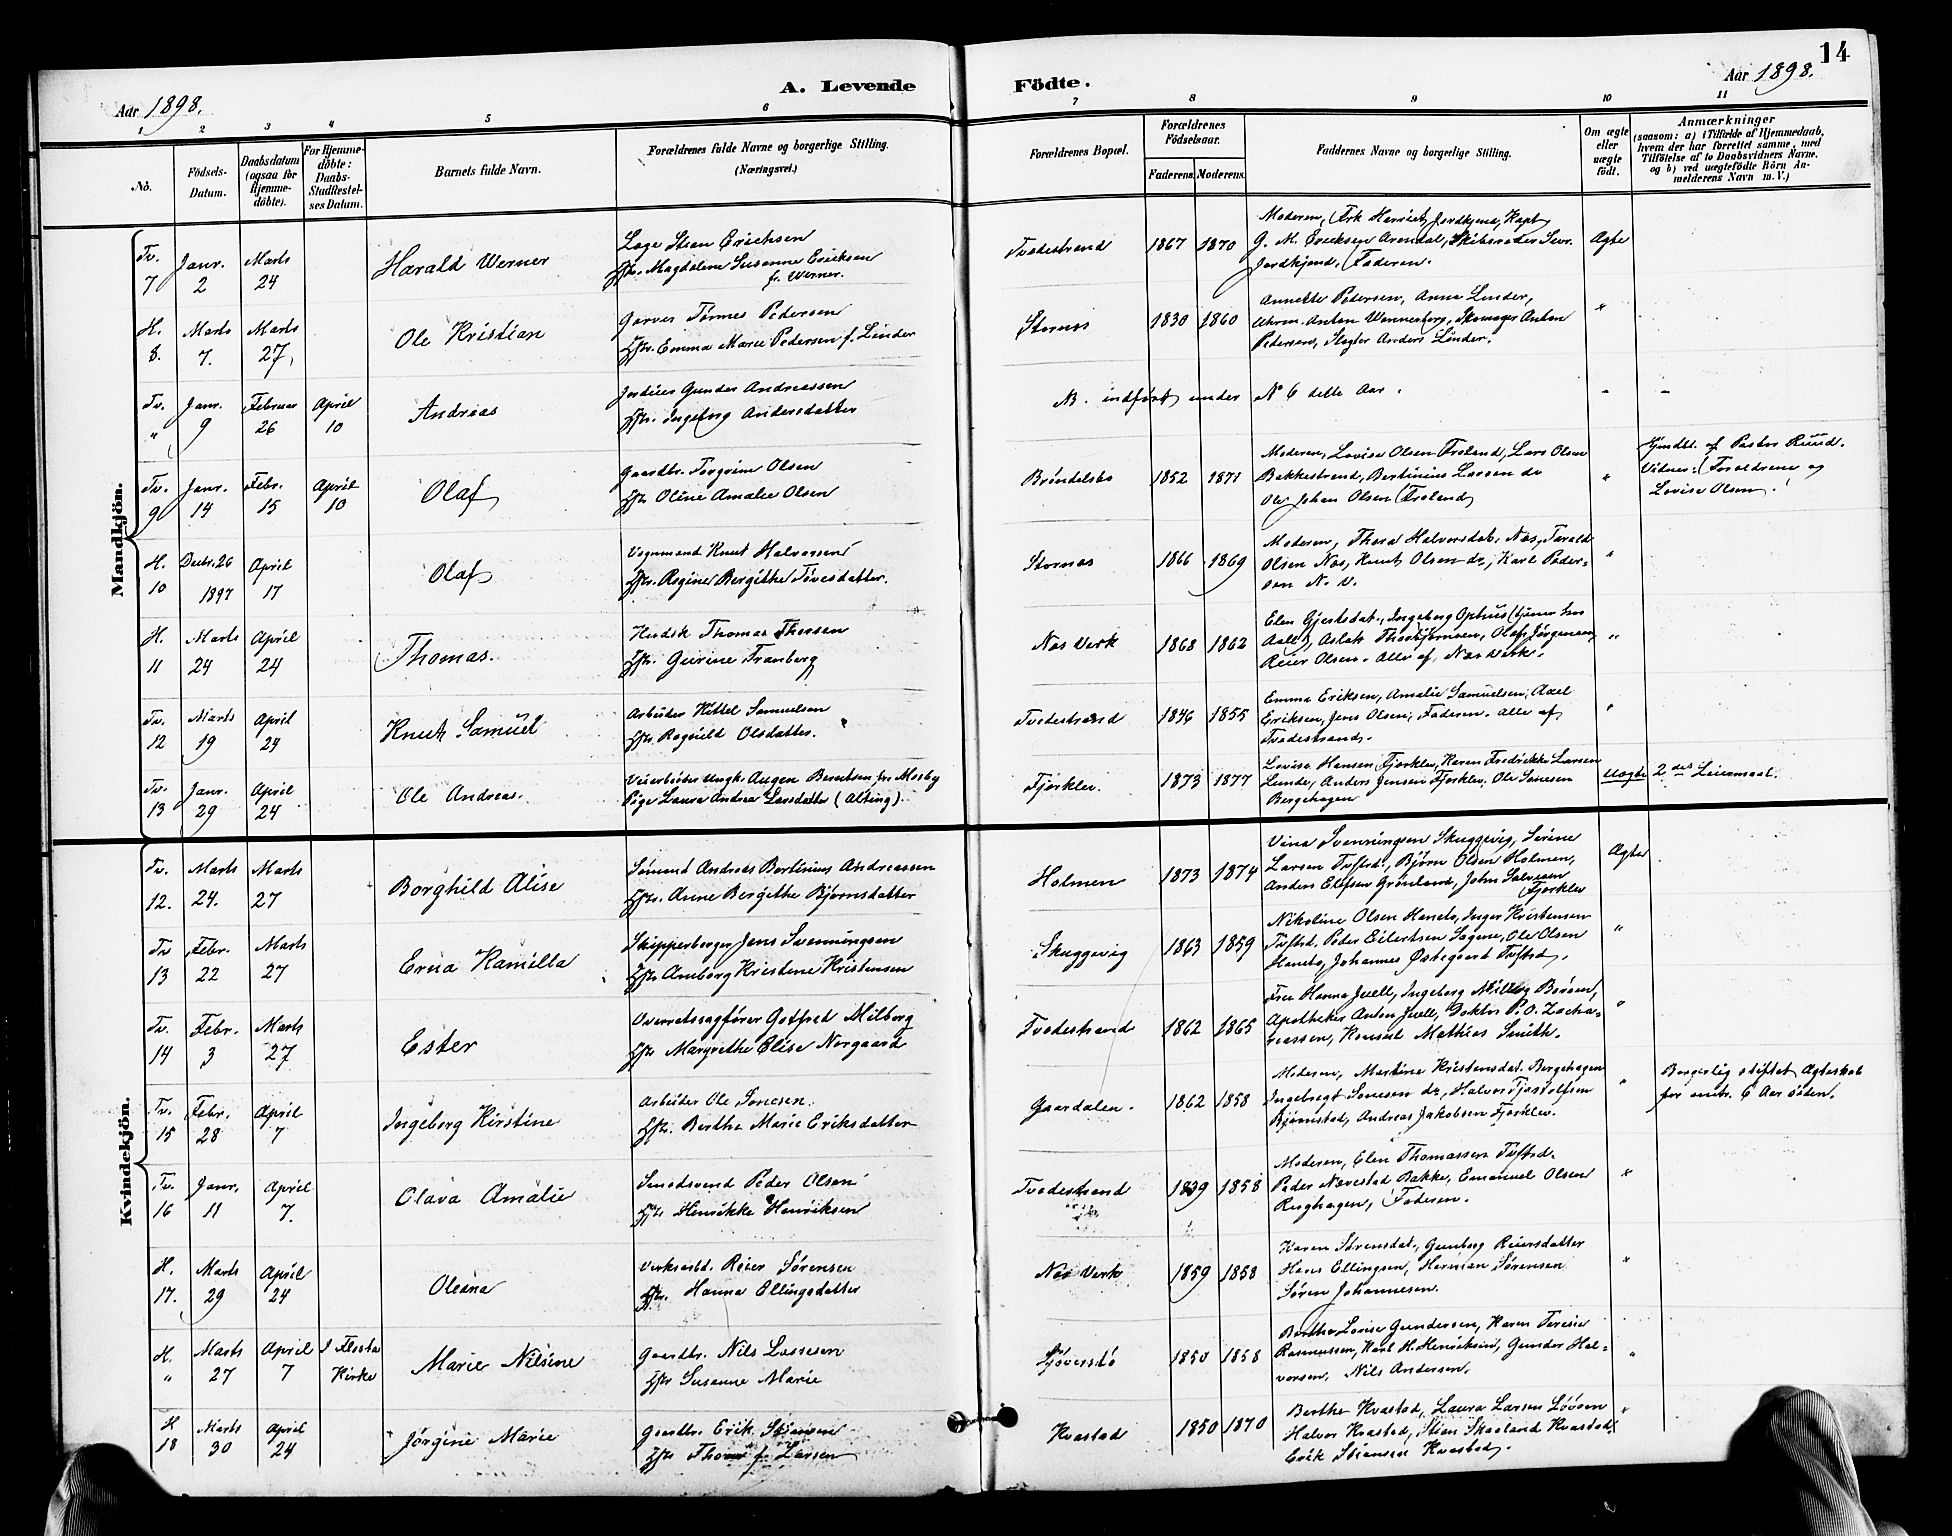 14
A. Levende Födte.
Aar 1898.
Aar 1898.
1 2 3 4 5 6 7 8 9 10 11
No.
Födsels-Datum.
Daabsdatum (ogsaa for Hjemme-döbte).
For Hjemme-döbte: Daabs-Stadfæstel-ses Datum.
Barnets fulde Navn.
Forældrenes fulde Navne og borgerlige Stilling.
(Næringsvei.)
Forældrenes Bopæl.
Forældrenes Födselsaar.
Faderens. Moderens.
Faddernes Navne og borgerlige Stilling.
Om ægte eller uægte födt.
Anmærkninger
(saasom: a) i Tilfælde af Hjemmedaab,
hvem der har forrettet samme, med
Tilföielse af to Daabsvidners Navne,
og b) ved uægtefödte Börn An-
melderens Navn m. V.)
Mandkjön.
Tv. 7 Janr. 2 Marts 24 Harald Werner
Loge Stian Erichsen
Hstr. Magdalene Susanne Ericksen f. Werner.
Tvedestrand 1867 1870
Moderen, Frk Harriet Jordkjend, Kapt
G. M. Ericksen Arendal, Skibsreder Sevr.
Jordkjend, Faderen.
Ægte
H. 8. Marts 7. Marts 27, Ole Kristian
Garver Tørres Pedersen
Hstr. Emma Marie Pedersen f. Linder
Stornes 1830 1860
Annette Pedersen, Anna Linder,
Uhrm. Anton Wennerberg, Skomager Anton
Pedersen, Slagter Anders Linder.
"
Tv. " Janr. 9 Februar 26 April 10 Andreas
Gunder Andreassen
Hstr. Ingeborg Andersdatter
NB. indført under N° 6 dette Aar.
Tv. 9 Janr. 14 Febr. 15 April 10 Olaf
Gaardbr. Torgrim Olsen
Hstr Oline Amalie Olsen
Brøndalsbo 1852 1871
Moderen, Lovise Olsen Froland, Lars Olsen
Bakkestrand, Bertinius Larsen do
Ole Johan Olsen Froland
"
Hjmdbt. af Pastor Ruud.
Vidner: Forældrene og
Lovise Olsen.
H. 10 Decbr. 26 1897 April 17 Olaf
Vognmand Knut Halvorsen
Hstr. Regine Bergithe Tovesdatter.
Stornes 1866 1869
Moderen, Thora Halvorsdat. Nes, Tarald
Olsen Nes, Knut Olsen do, Karl Peder-
sen N. V.
"
H. 11 Marts 24 April 24 Thomas.
Thomas Thorsen
Hstr. Gurine Tranberg
Nes Verk 1868 1862
Elen Gjertsdat., Ingeborg Ophus (tjener hos
Aall), Aslak Thorbjørnsen, Olaf Jørgensen,
Reier Olsen. Alle af Nes Verk.
"
Tv. 12 Marts 19 April 24 Knut Samuel
Arbeider Kittel Samuelsen
Hstr. Ragnild Olsdatter.
Tvedestrand 1846 1855
Emma Eriksen, Amalie Samuelsen, Axel
Eriksen, Jens Olsen, Faderen. Alle af
Tvedestrand.
"
Tv. 13 Janr. 29 April 24 Ole Andreas.
Veiarbeider Ungk. Augen Berntsen fra Mosby
Pige Laura Andrea Larsdatter (Alting).
Fjorklev. 1873 1877
Lovise Hansen Fjorklev, Karen Fredrikke Larsen
Lunde, Anders Jensen Fjorklev, Ole Sørensen
Bergehagen
Uægte
2 det Leiermaal.
Kvindekjön.
Tv. 12. Marts 24. Marts 27 Borghild Alise
Sømand Andreas Bertinius Andreassen
Hstr. Anne Bergithe Bjørnsdatter
Holmen 1873 1874
Vina Svenningsen Skuggevig, Serine
Larsen Tvftrd., Bjørn Olsen Holmen,
Anders Olufsen Grønland, John Salvesen
Fjorklev
Ægte
Tv 13 Febr. 22 Marts 27 Erna Kamilla
Skipperborger Jens Svenningsen
Hstr Amborg Kristine Kristensen
Skuggevig 1863 1859
Nikoline Olsen Hanetø, Inger Kristensen
Tvftrd, Peder Eilertsen Sagene, Ole Olsen
Hanetø, Johannes Østegaard Tvftrd.
"
Tv. 14 Febr. 3 Marts 27 Ester
Overretssagfører Gotfred Milberg
Hstr Margrethe Elise Nørgaard
Tvedestrand 1862 1865
Fru Hanna Juell, Ingeborg Milberg Børøen,
Apotheker Anton Juell, Doktor P. O. Zacha-
riassen, Konsul Mathias Smith.
"
Tv. 15 Febr. 28 April 7 Ingeborg Kirstine
Arbeider Ole Sørensen.
Hstr. Berthe Marie Eriksdatter
Gaardalen. 1862 1858
Moderen, Martine Kristensdat. Bergehagen
Ingebregt Sørensen do, Halvor Fjostolfsen
Bjørnstad, Andreas Jakobsen Fjorklev.
"
Borgerlig stiftet Ægteskab
for omtr. 6 Aar siden.
Tv. 16 Janr. 11 April 7. Olava Amalie
Smedsvend Peder Olsen
Hstr Henrikke Henriksen
Tvedestrand 1839 1858
Moderen, Elen Thomassen Tvftrd.
Peder Navestad Bakke, Emanuel Olsen
Rughagen, Faderen.
"
H. 17. Marts 29 April 24 Oleana
Verksarbd. Reier Sørensen
Hstr. Hanna Ellingsdatter
Nes Verk 1859 1858
Karen Sørensdat., Gunborg Reiersdatter
Hans Ellingsen, Herman Sørensen
Søren Johannesen.
"
H. " Marts 27 April 7 I Flosta Kirke Marie Nilsine
Gaardbr. Nils Lassesen
Hstr Susanne Marie
Sjøverstø 1850 1858
Berthe Lovise Gundersen, Karen Teresie
Rasmussen, Karl H. Henriksen, Gunder Hal-
vorsen, Nils Andersen.
"
H 18 Marts 30 April 24 Jørgine Marie
Gaardbr. Erik Stiansen
Hstr Thorine f. Larsen
Kvastad 1850 1870
Berthe Kvastad, Laura Larsen Løvsen
Halvor Kvastad, Stian Skaaland Kvastad
Erik Stiansen Kvastad.
"